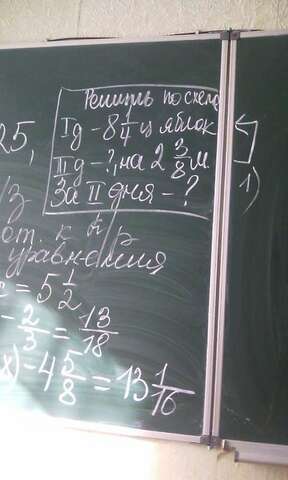 Решить по схеме
I д - 8 1/4 ц яблок
II д - ?, на 2 3/8 м.
За II дня - ?
25,
от. к
уравнения
= 5 1/2
- 2/3 = 13/18
x) - 4 5/8 = 13 1/16
1)